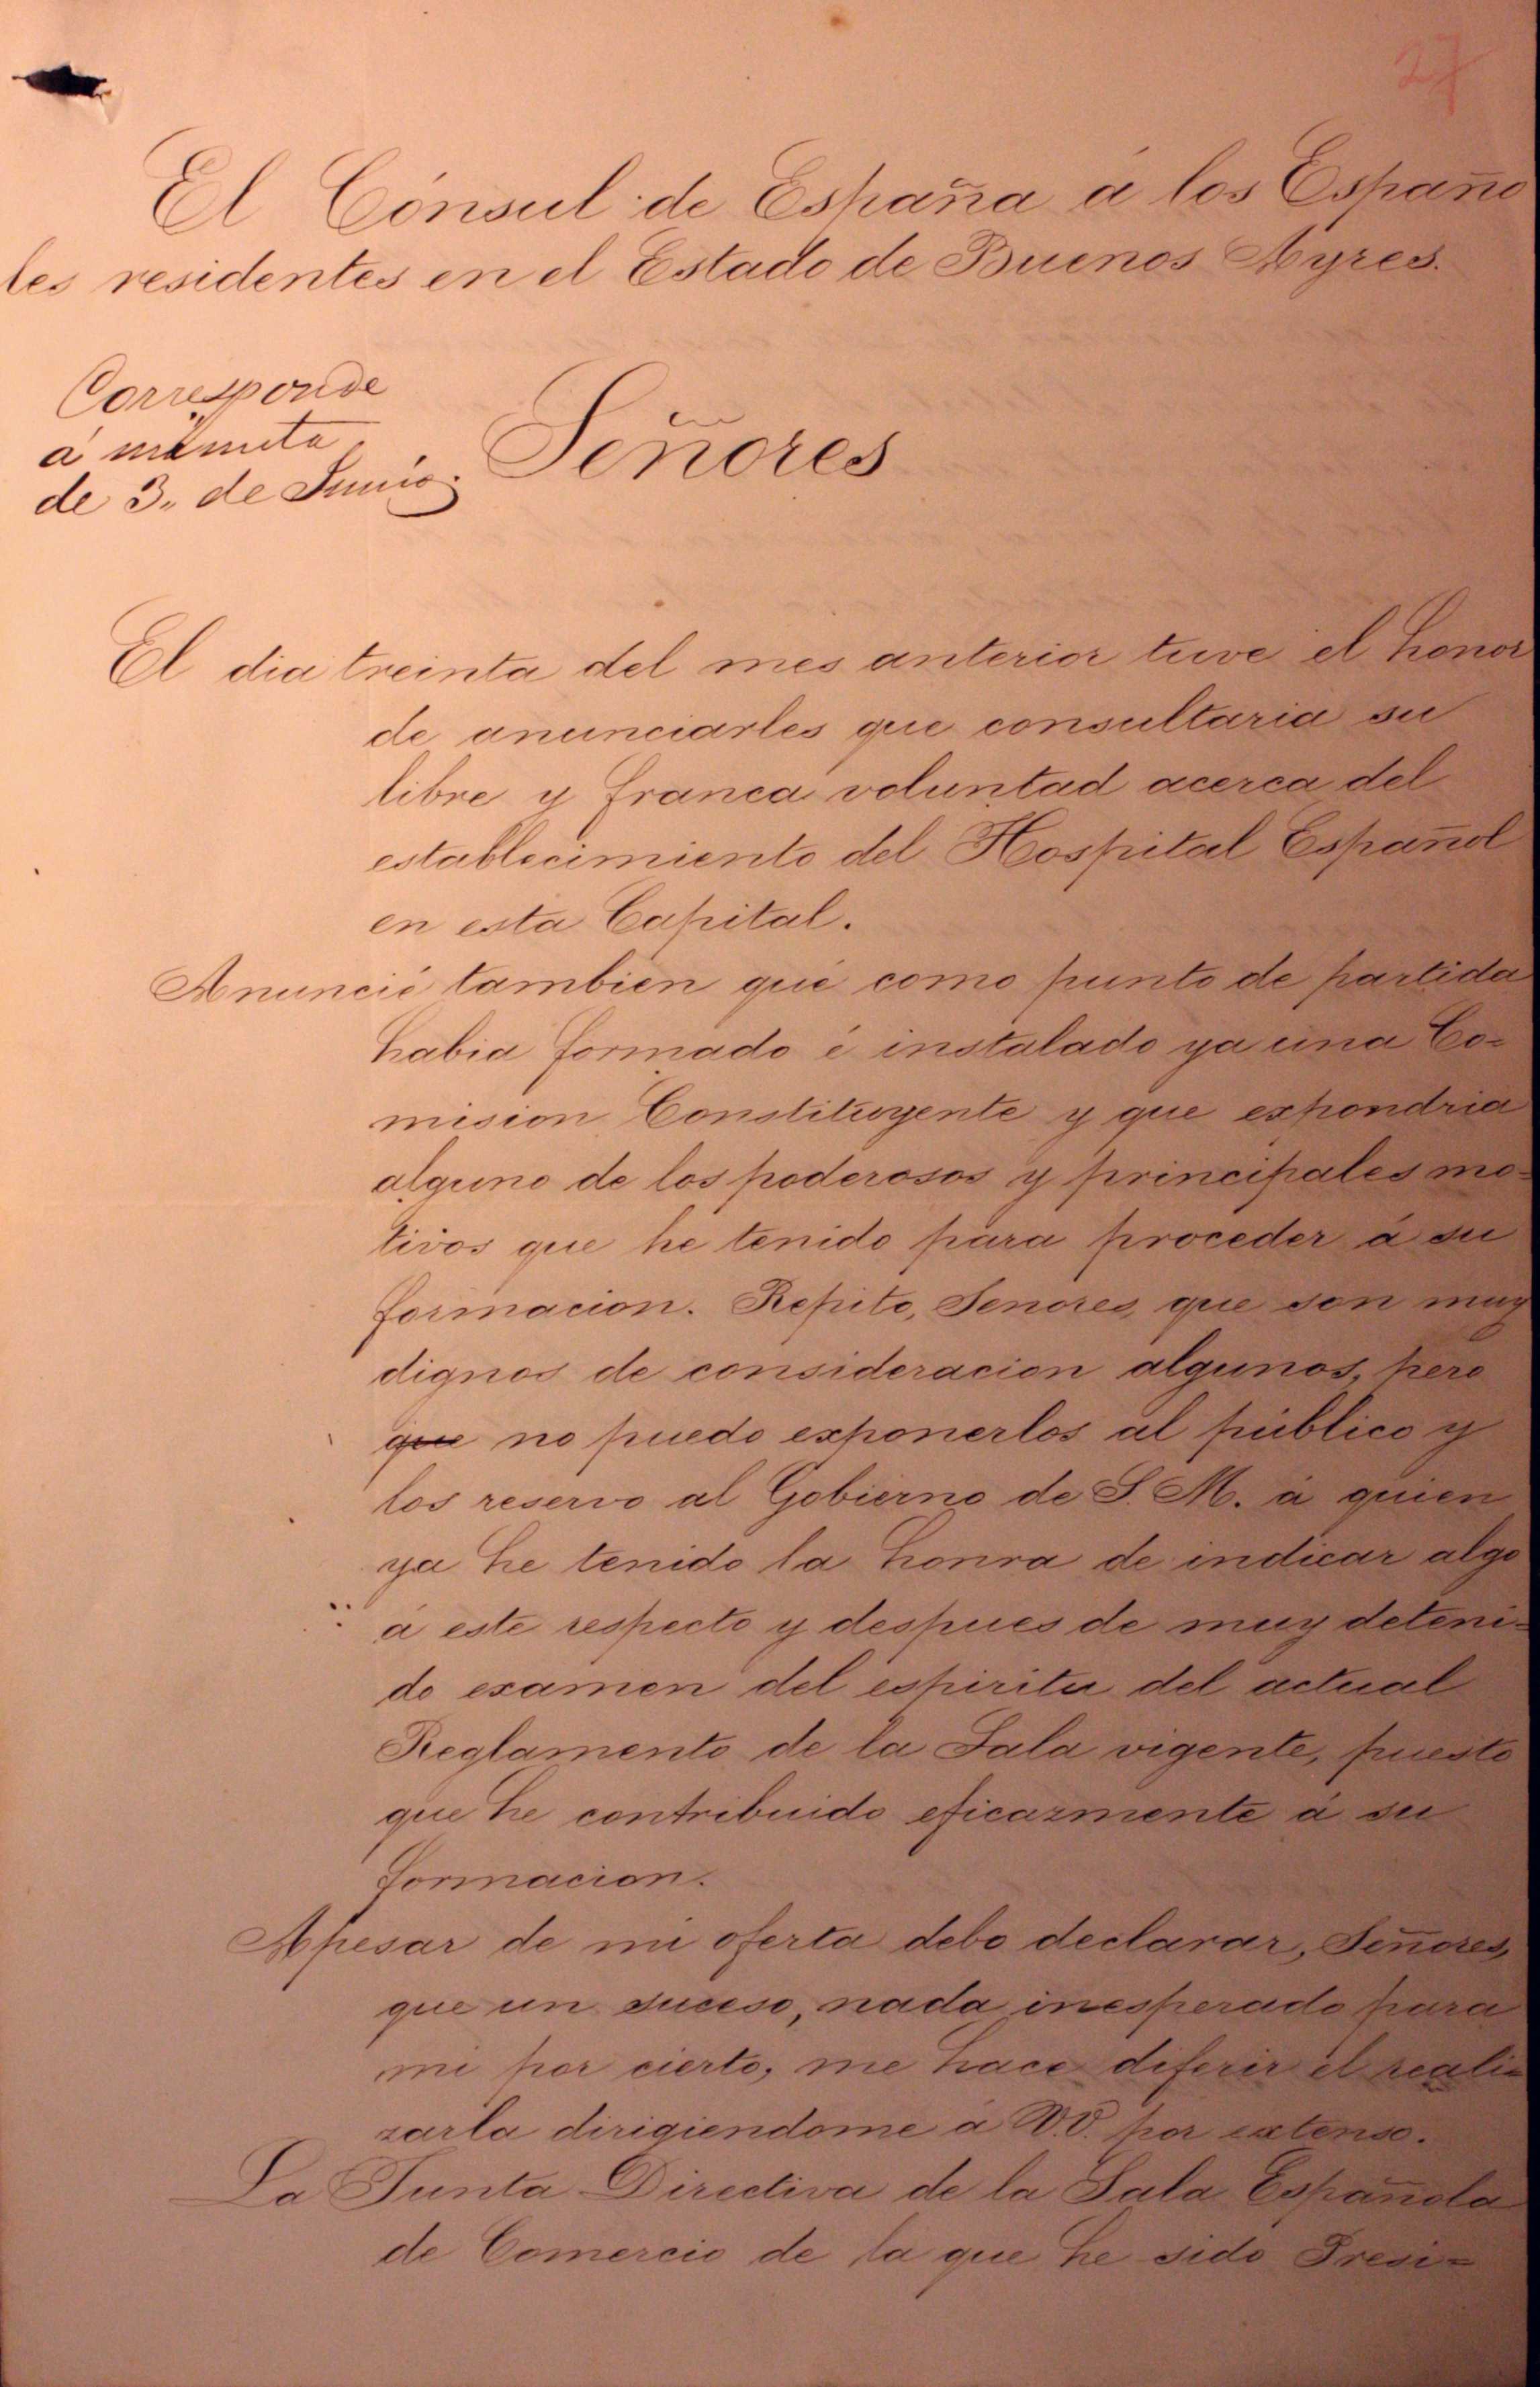 27
El Cónsul de España á los Españo
les residentes en el Estado de Buenos Ayres.
Corresponde
á minuta
de 3,, de Junio.
Señores
El dia treinta del mes anterior tuve el honor
de anunciarles que consultaria su
libre y franca voluntad acerca del
establecimiento del Hospital Español
en esta Capital.
Anuncié tambien que como punto de partida
habia formado é instalado ya una Co=
mision Constituyente y que expondria
alguno de los poderosos y principales mo=
tivos que he tenido para proceder á su
formacion. Repito, Senores, que son muy
dignos de consideracion algunos, pero
que no puedo exponerlos al público y
los reservo al Gobierno de S. M. á quien
ya he tenido la honra de indicar algo
á este respecto y despues de muy deteni=
do examen del espiritu del actual
Reglamento de la Sala vigente, puesto
que he contribuido eficazmente á su
formacion.
Apesar de mi oferta debo declarar, Señores,
que un suceso, nada inesperado para
mi por cierto, me hace diferir el reali=
zarla dirigiendome á V.V. por extenso.
La Junta Directiva de la Sala Española
de Comercio de la que he sido Presi=